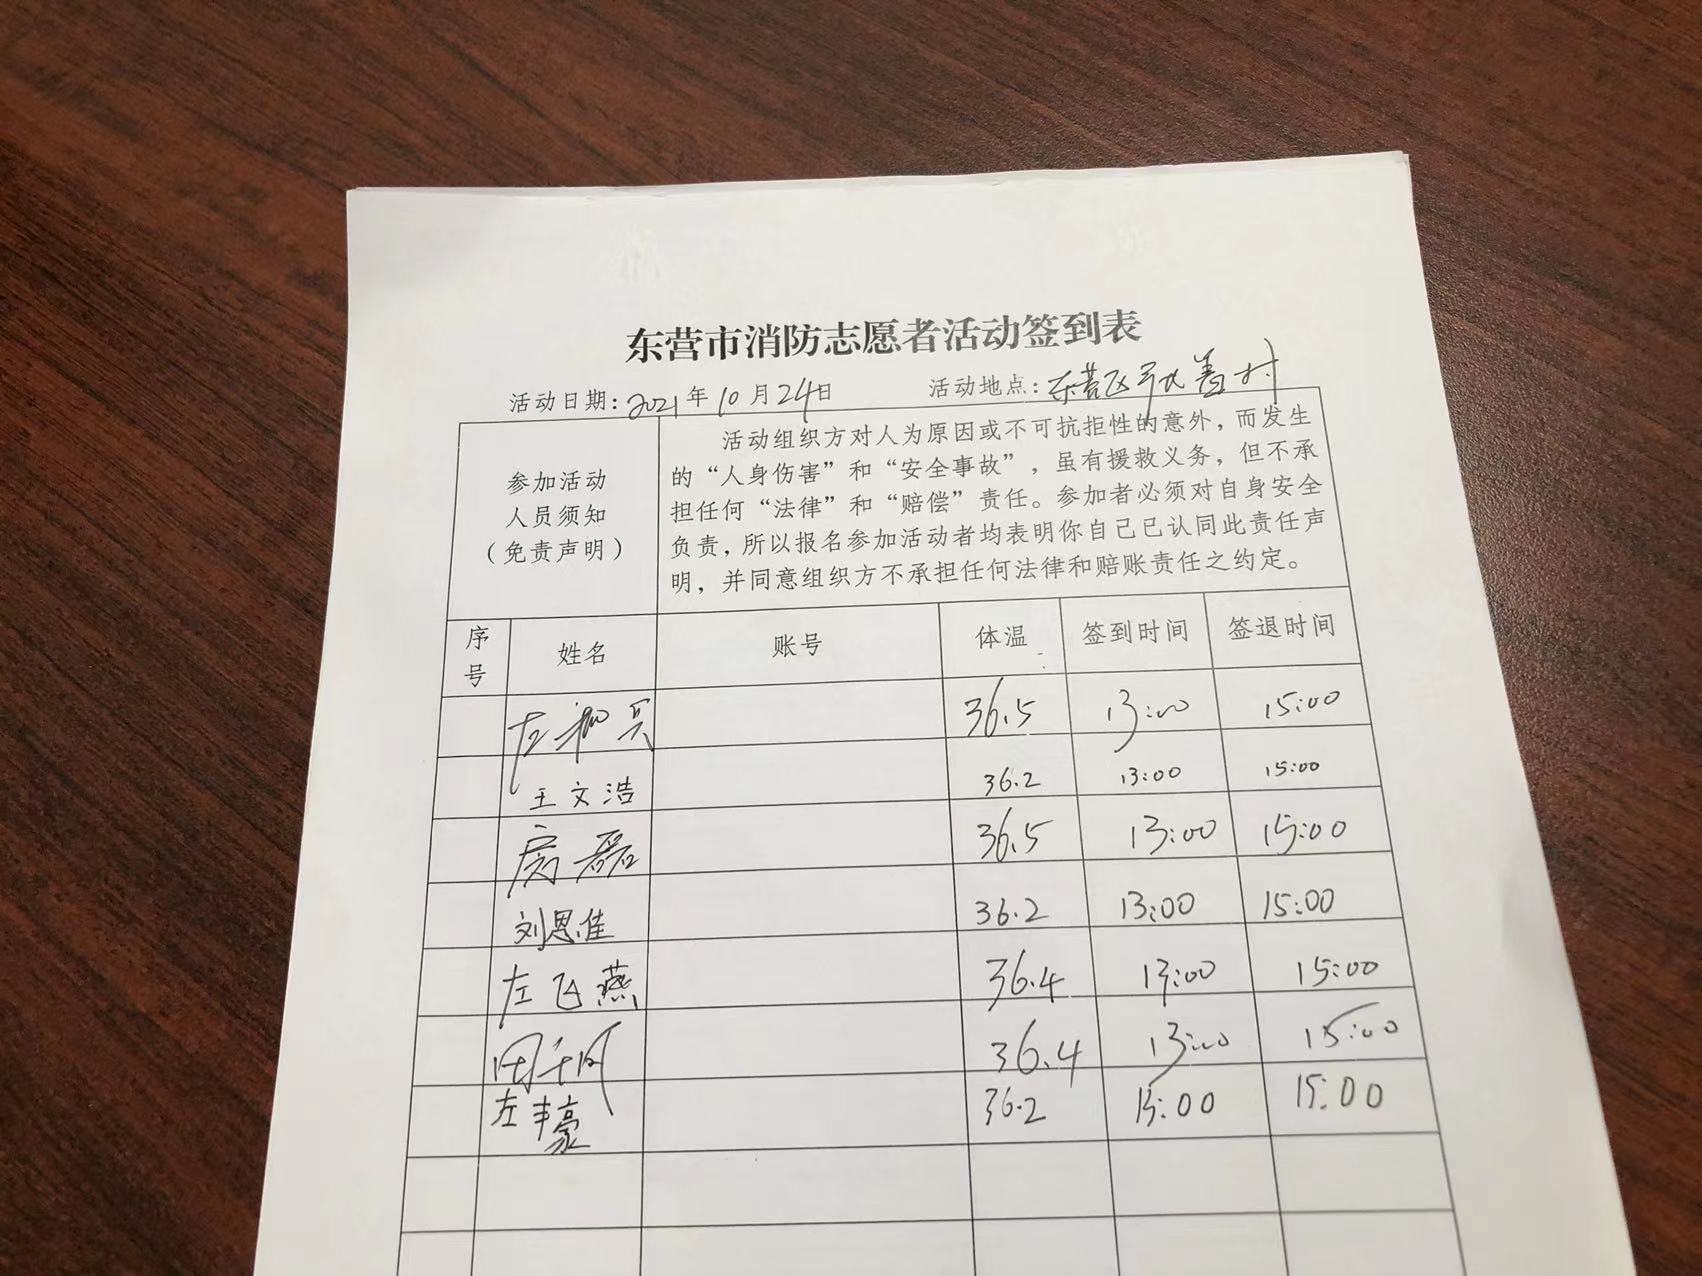 东营市消防志愿者活动签到表
活动日期：2021年10月24日 活动地点：东营区 善村
参加活动
人员须知
（免责声明）
活动组织方对人为原因或不可抗拒性的意外，而发生
的“人身伤害”和“安全事故”，虽有援救义务，但不承
担任何“法律”和“赔偿”责任。参加者必须对自身安全
负责，所以报名参加活动者均表明你自己已认同此责任声
明，并同意组织方不承担任何法律和赔账责任之约定。
序号 姓名 账号 体温 签到时间 签退时间
左 兵 36.5 13:00 15:00
王文浩 36.2 13:00 15:00
房磊 36.5 13:00 15:00
刘恩佳 36.2 13:00 15:00
左飞燕 36.4 13:00 15:00
36.4 13:00 15:00
左丰豪 36.2 13:00 15:00